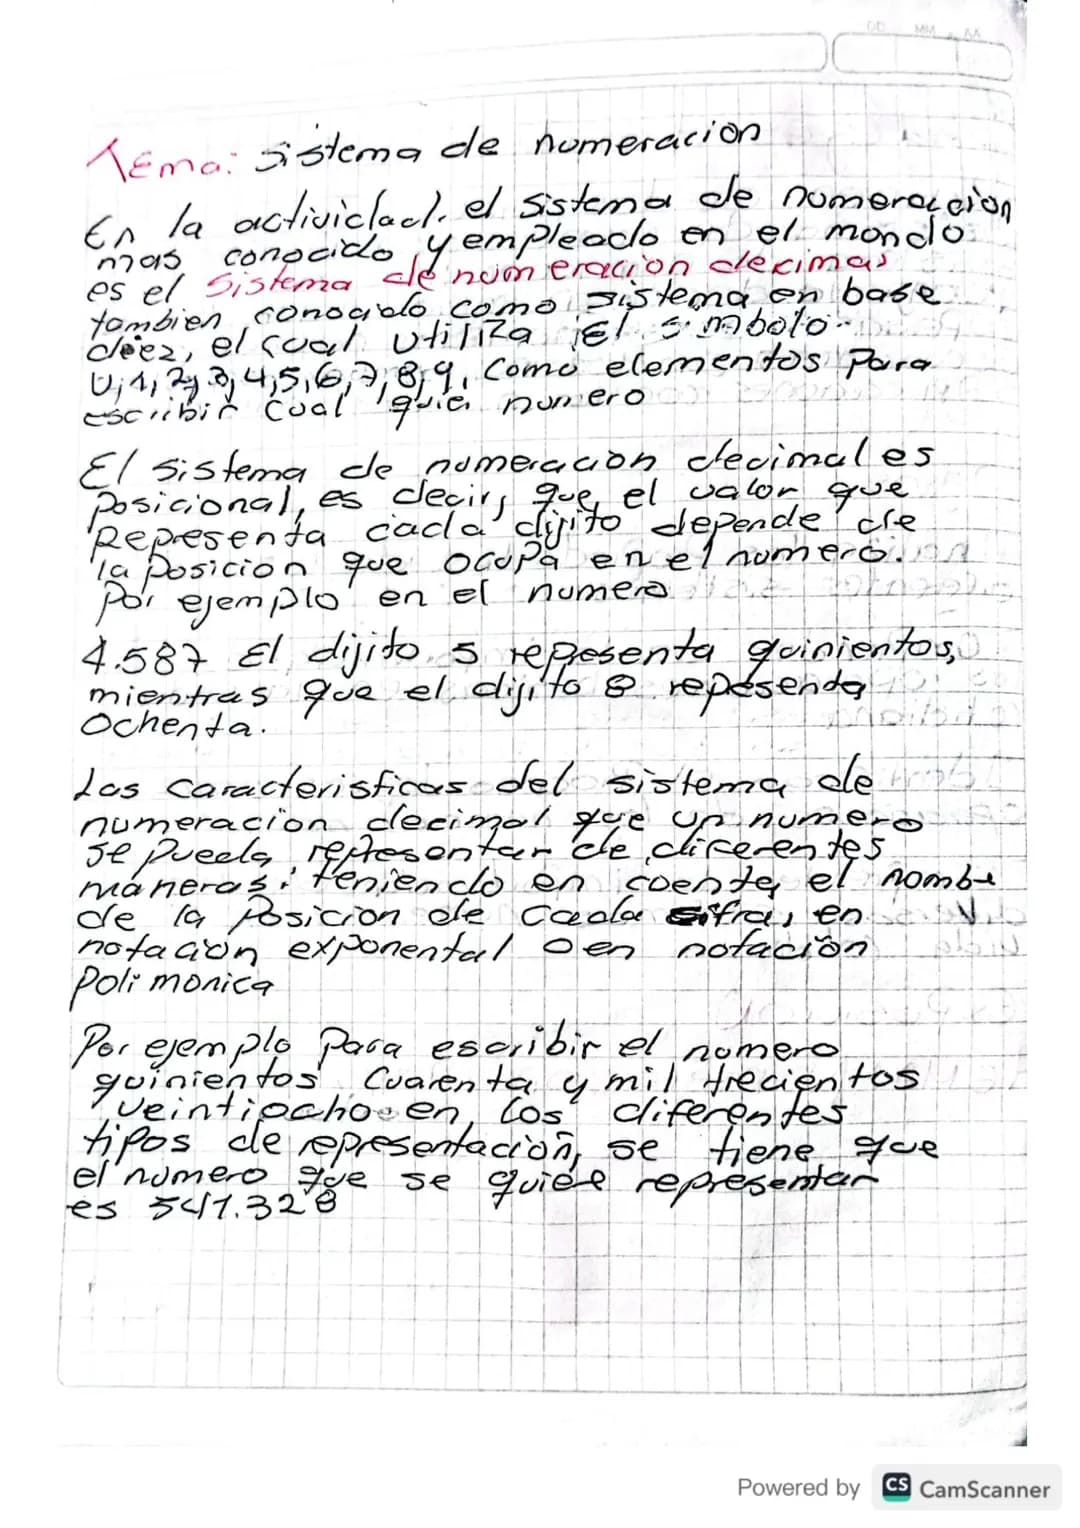 DD MM AA
Tema: sistema de numeracion
En la actividad. el sistema de numeracion
mas conocido y empleado en el mondo
es el Sistema de numeracion decimal
tambien conocido como sistema en base
diez, el cual utiliza El simbolo
0,1,2,3,4,5,6,7,8,9, Como elementos para
escribir cual quier numero
El sistema de numeracion decimal es
posicional, es decir, que el valor que
Representa cada dijito depende de
la posicion que ocupa en el numero.
Por ejemplo en el numero
4.587 El dijito 5 representa quinientos,
mientras que el dijito 8 represenda
Ochenta.
Las caracteristicas del sistema de
numeracion decimal que un numero
se pueda representar de dicerentes
maneras: teniendo en coenta el nombre
de la posicion de cada sifra, en
notacion exponental o en notaciòn
Polimonica
Por ejemplo para escribir el numero
quinientos cuarenta y mil trecientos
veintiocho en los diferentes
tipos de representaciòn, se tiene que
el numero que se quiee representar
es 541.328
Powered by CS CamScanner